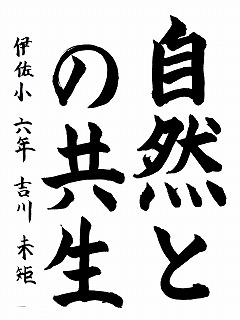 自然と
の共生
伊佐小 六年 吉川 未矩